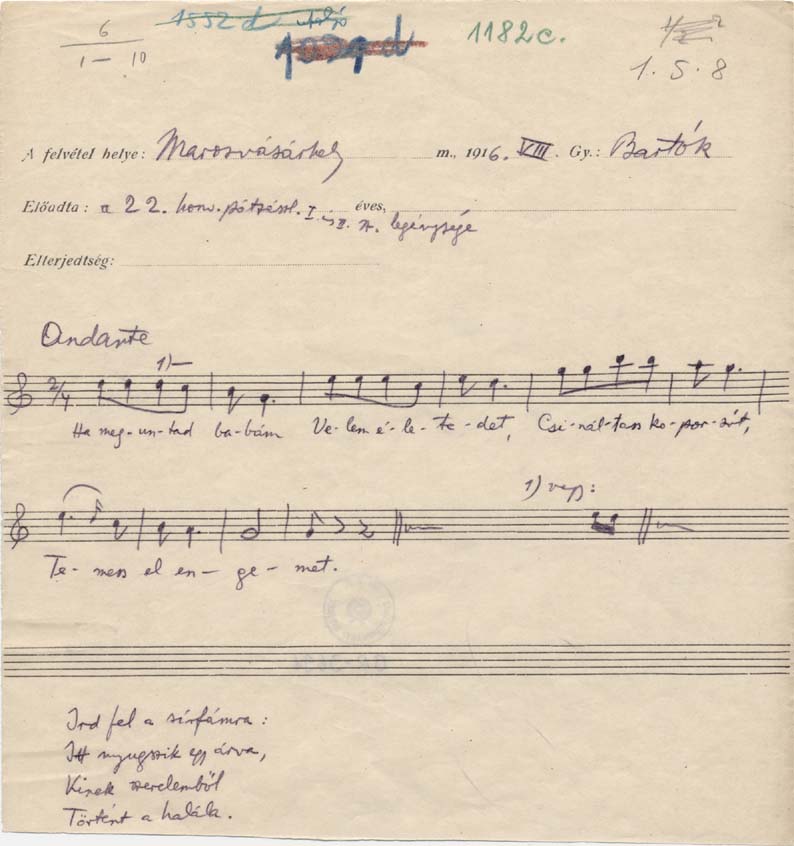 6
1 — 10
1552 d utolsó
1029 d
1182c.
1. S. 8
A felvétel helye: Marosvásárhely m., 1916. VIII. Gy.: Bartók
Előadta: a 22. honv. pótzászl. I. és II. éves,
legénysége
Elterjedtség:
Andante
1)
2/4
Ha meg-un-tad ba-bám Ve-lem é-le-te-det, Csi-nál-tass ko-por-sót,
1) vagy:
Te-mess el en-ge-met.
Ird fel a sírfámra:
Itt nyugszik egy árva,
Kinek szerelemből
Történt a halála.